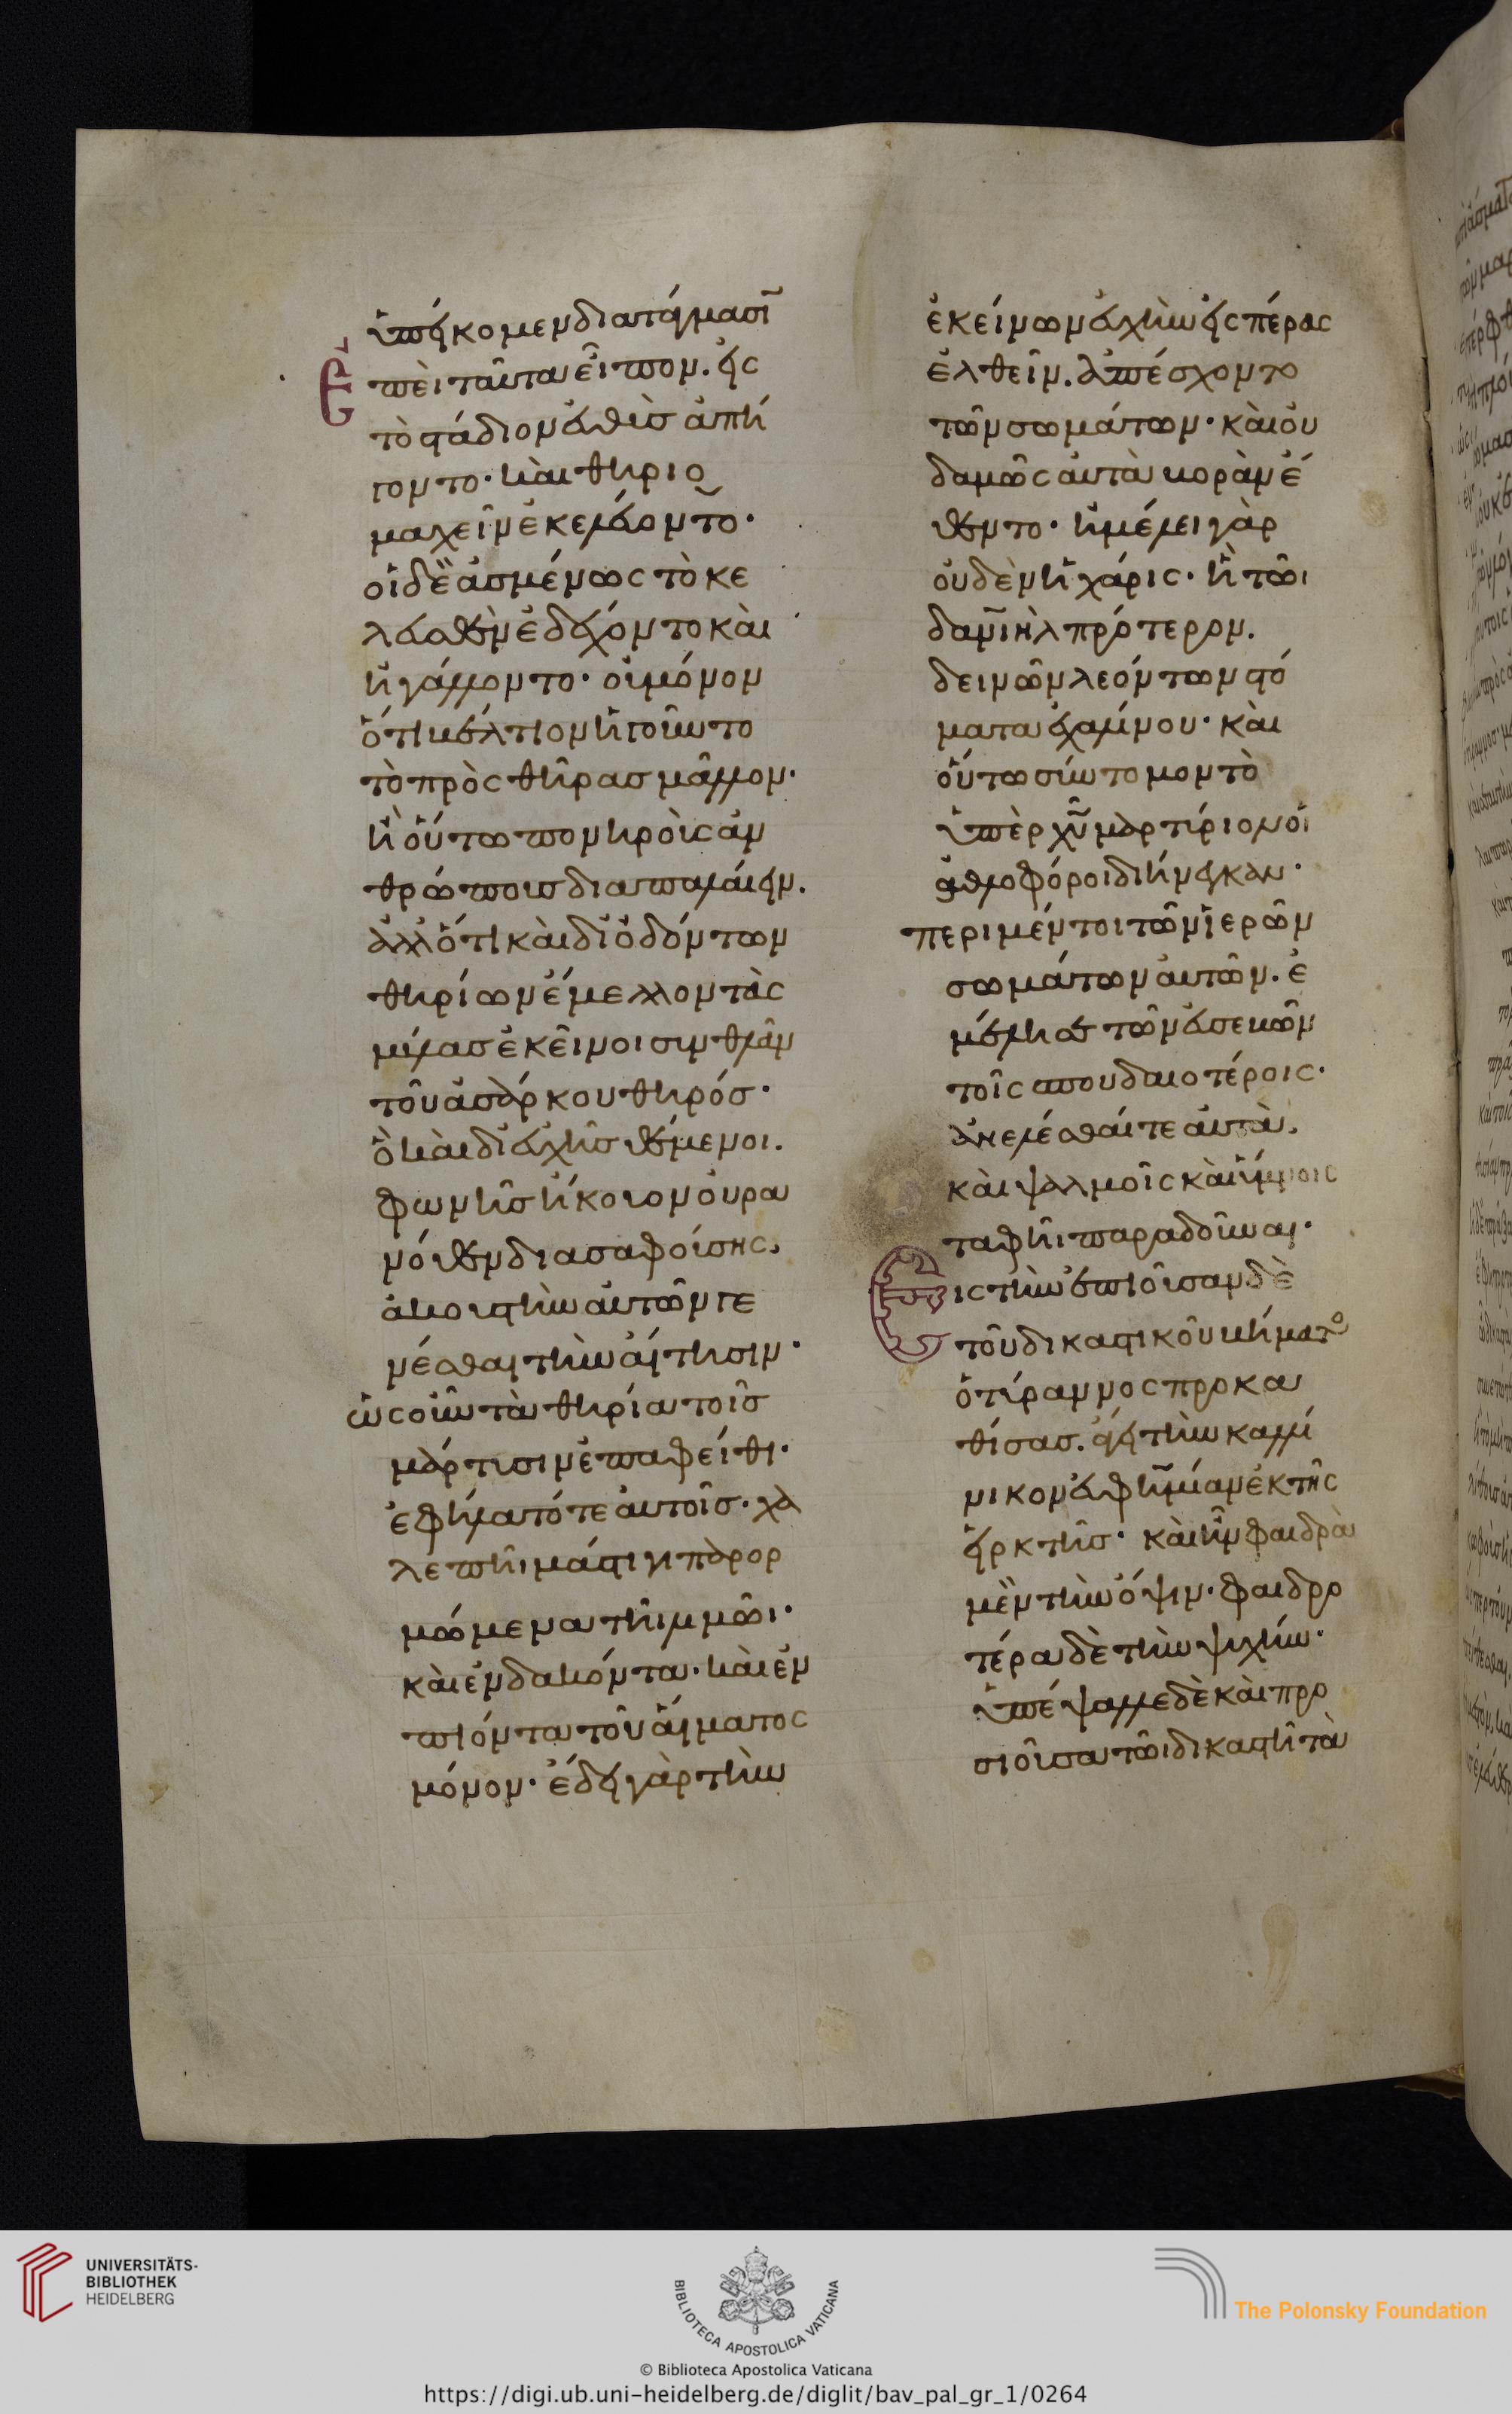 ὑπείκομεν διατάγμασι
Ἐπεὶ ταῦτα εἶπον. εἰς
τὸ στάδιον εὐθὺς ἀπή
γοντο· καὶ θηριο
μαχεῖν ἐκελεύοντο·
οἱ δὲ ἀσμένως τὸ κε
λευσθὲν ἐδέχοντο καὶ
ἠγάλλοντο· οὐ μόνον
ὅτι βέλτιον ἡγοῦντο
τὸ πρὸς θῆρας μᾶλλον·
ἢ οὕτω πονηροῖς ἀν
θρώποις διαπαλαίειν.
ἀλλ' ὅτι καὶ δι' ὀδόντων
θηρίων ἔμελλον τὰς
μύλας ἐκεῖνοι συνθλᾶν
τοῦ ἀσάρκου θηρός·
ὃ καὶ δι' εὐχῆς θέμενοι.
φωνῆς ἤκουον οὐρα
νόθεν διασαφούσης.
ἀκουστὴν αὐτῶν γε
νέσθαι τὴν αἴτησιν·
ὡς οὖν τὰ θηρία τοῖς
μάρτυσιν ἐπαφείθη·
ἐφήλατό τε αὐτοῖς· χα
λεπῆι μάστιγι παρορ
μώμενα τῆι λιμῶι·
καὶ ἐνδακόντα· καὶ ἐμ
πιόντα τοῦ αἵματος
μόνον· ἔδει γὰρ τὴν
ἐκείνων εὐχὴν εἰς πέρας
ἐλθεῖν. ἀπέσχοντο
τῶν σωμάτων· καὶ οὐ
δαμῶς αὐτὰ βορὰν ἔ
θεντο· ἠμέλει γὰρ
οὐδὲν ἡ χάρις· ἢ τῶι
δανιὴλ πρότερον.
δεινῶν λεόντων στό
ματα ἐχαλίνου· καὶ
οὕτω σύντομον τὸ
ὑπὲρ χυ μαρτύριον οἱ
ἀθλοφόροι διήνεγκαν·
περιμέντοι τῶν ἱερῶν
σωμάτων αὐτῶν. ἐ
μέλησε τῶν εὐσεβῶν
τοῖς σπουδαιοτέροις·
ἀνελέσθαι τε αὐτὰ.
καὶ ψαλμοῖς καὶ ὕμνοις
ταφῆι παραδοῦναι·
Εἰς τὴν ἐπιοῦσαν δὲ
τοῦ δικαστικοῦ βήματο
ὁ τύραννος προκα
θίσας. ἄγει τὴν καλλί
νικον εὐφημίαν ἐκ τῆς
εἱρκτῆς· καὶ ἦν φαιδρὰ
μὲν τὴν ὄψιν· φαιδρο
τέρα δὲ τὴν ψυχήν·
ὑπέψαλλε δὲ καὶ προ
σιοῦσα τῶι δικαστῆι τὰ
UNIVERSITÄTS-
BIBLIOTHEK
HEIDELBERG
BIBLIOTECA APOSTOLICA VATICANA
The Polonsky Foundation
© Biblioteca Apostolica Vaticana
https://digi.ub.uni-heidelberg.de/diglit/bav_pal_gr_1/0264